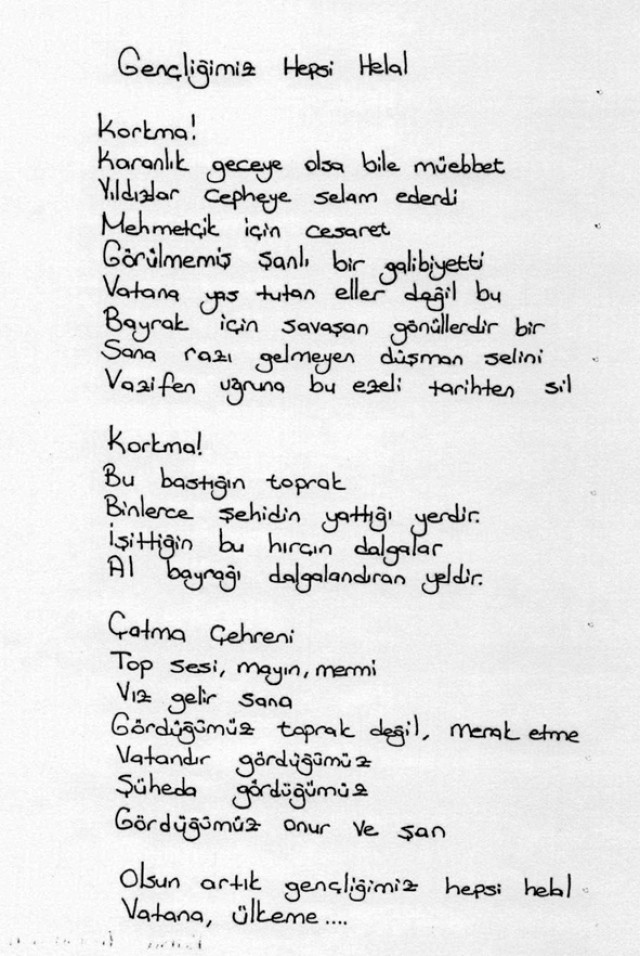 Gençliğimiz Hepsi Helal
Korkma!
Karanlık geceye olsa bile müebbet
Yıldızlar cepheye selam ederdi
Mehmetçik için cesaret
Görülmemiş şanlı bir galibiyetti
Vatana yas tutan eller değil bu
Bayrak için savaşan gönüllerdir bir
Sana razı gelmeyen düşman selini
Vazifen uğruna bu ezeli tarihten sil
Korkma!
Bu bastığın toprak
Binlerce şehidin yattığı yerdir.
İşittiğin bu hırçın dalgalar
Al bayrağı dalgalandıran yeldir.
Çatma Çehreni
Top sesi, mayın, mermi
Vız gelir sana
Gördüğümüz toprak değil, merak etme
Vatandır gördüğümüz
Şüheda gördüğümüz
Gördüğümüz onur ve şan
Olsun artık gençliğimiz hepsi helal
Vatana, ülkeme....